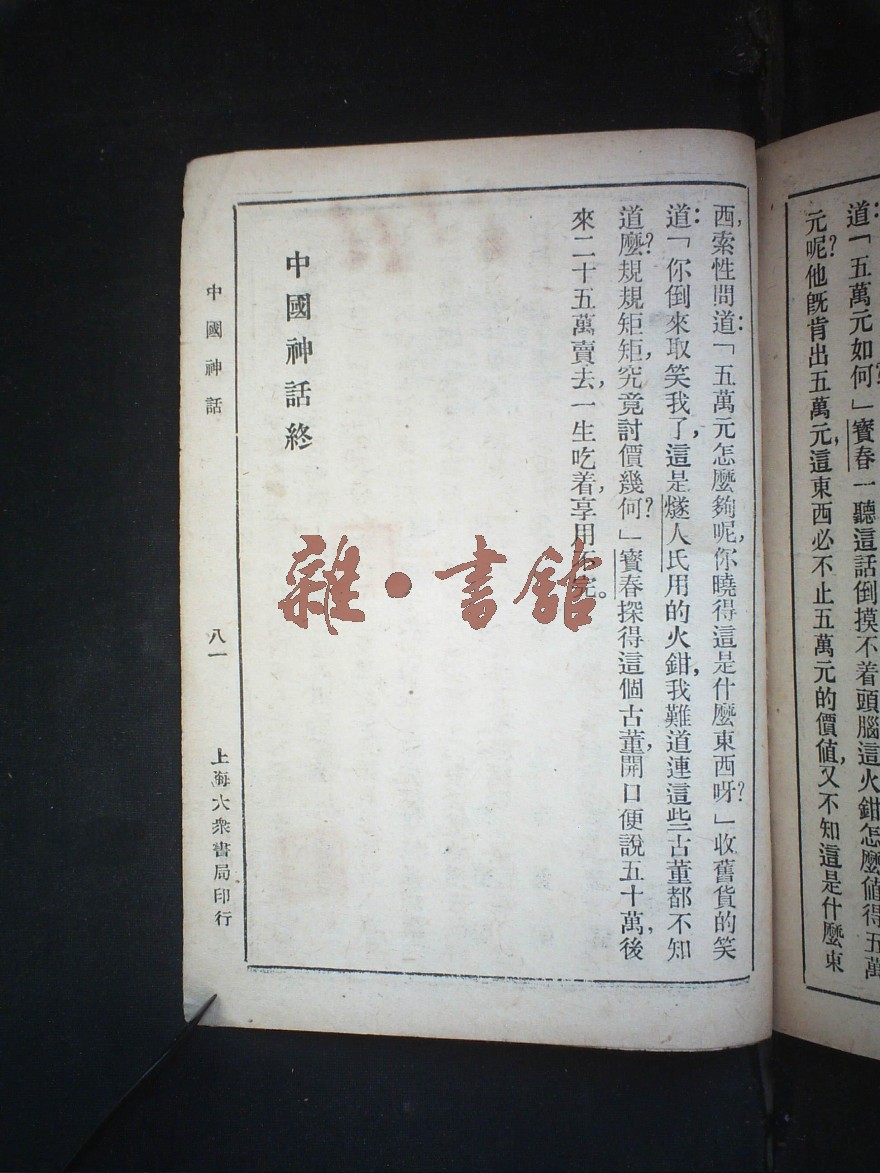 道：「五萬元如何」寶春一聽這話倒摸不着頭腦這火鉗怎麼値得五萬
元呢？他旣肯出五萬元，這東西必不止五萬元的價値，又不知這是什麼東
西，索性問道：「五萬元怎麼夠呢，你曉得這是什麼東西呀？」收舊貨的笑
道：「你倒來取笑我了，這是燧人氏用的火鉗，我難道連這些古董都不知
道麼？規規矩矩，究竟討價幾何？」寶春探得這個古董，開口便說五十萬，後
來二十五萬賣去，一生吃着，享用不完。
中國神話終
中國神話
八一
上海大衆書局印行
雜·書舘